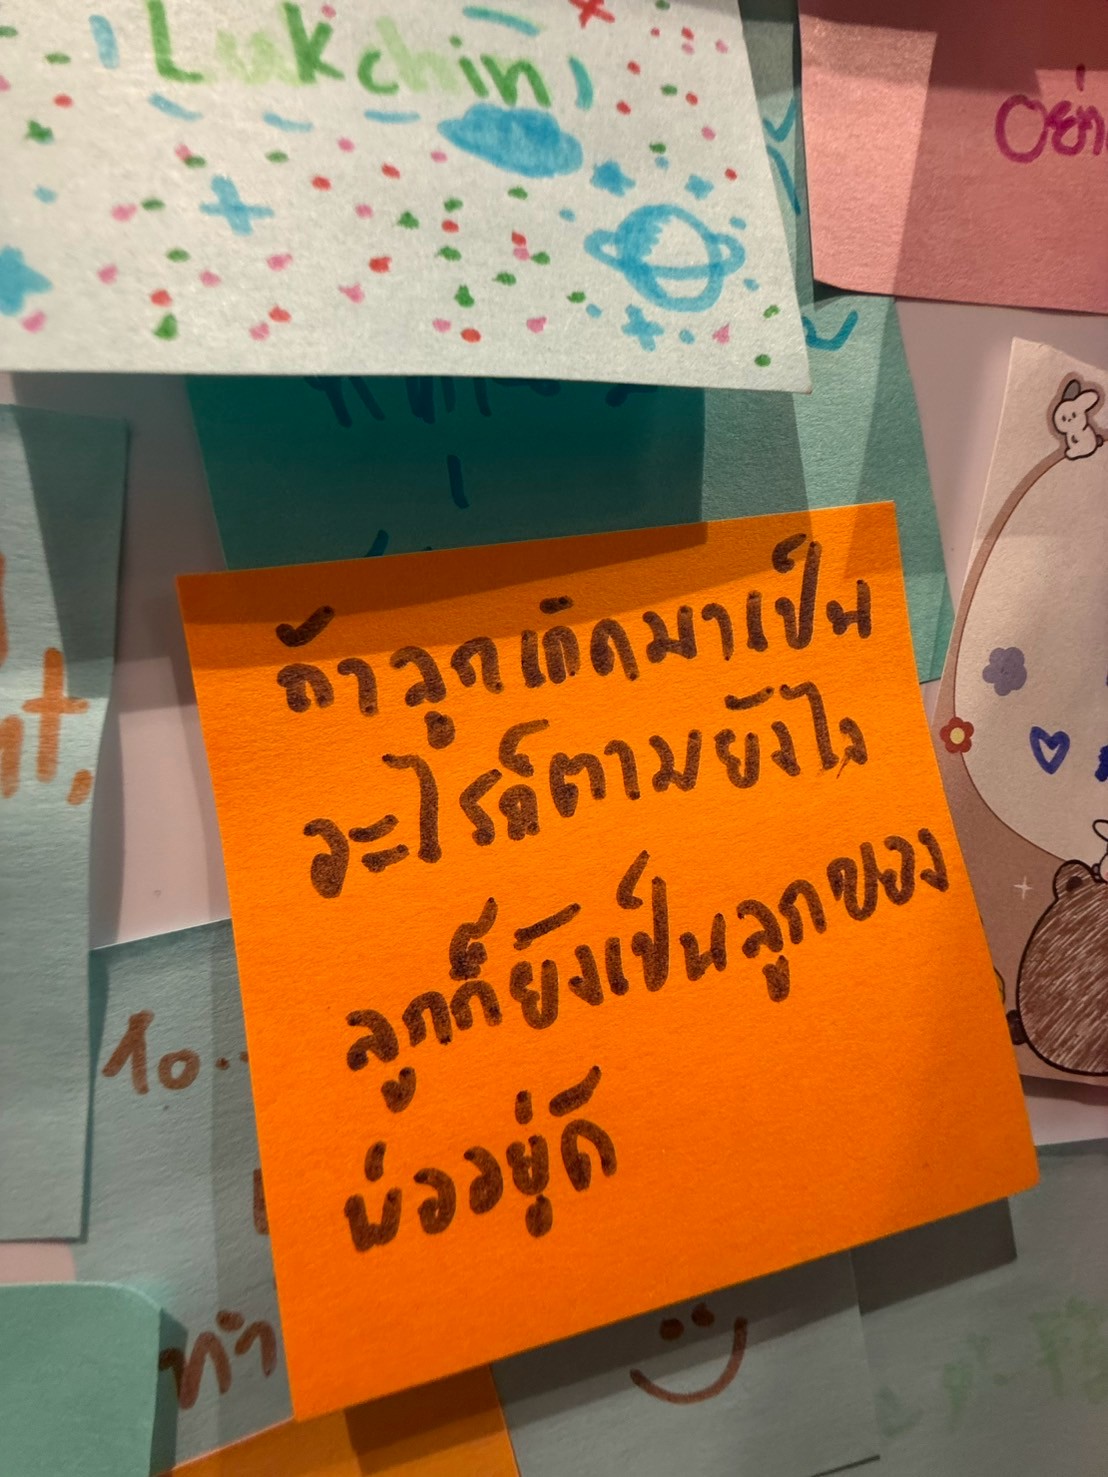 Lukchin
อย่า
ถ้าลูกเกิดมาเป็น
อะไรก็ตามยังไง
ลูกก็ยังเป็นลูกของ
พ่ออยู่ดี